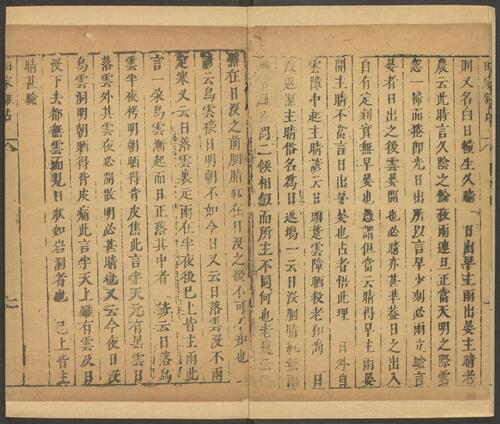 則又名白日幢生久晴 日出早主雨出晏主晴老
農云此時言久陰之餘夜雨連旦正當天明之際雲
忽一掃而捲即光日出所以言早少刻必雨立驗言
晏者日出之後雲晏開也必晴亦甚準蓋日之出入
自有定刻實無早晏也愚謂但當云晴得早主雨晏
開主晴不當言日出早晏也占者悟此理 日外自
雲障中起主晴諺云日頭楚雲障晒殺老和尚 日
返塢主晴俗名為日返塢一云日沒胭脂紅無雨
問二候相似而所主不同何也老農云
在日沒之前胭脂紅在日沒之後不可不知也
諺云烏雲接日明朝不如今日又云日落雲沒不雨
定寒又云日落雲裏走雨在半夜後已上皆主雨此
言一朵烏雲漸起而日正落其中者 諺云日落烏
雲半夜枵明朝晒得背皮焦此言半天元有黑雲日
落雲外其雲夜必開散明必甚晴也又云今夜日沒
烏雲洞明朝晒得背皮痛此言半天上雖有雲及日
沒下去都無雲而見日狀如岩洞者也 已上皆主
晴甚驗